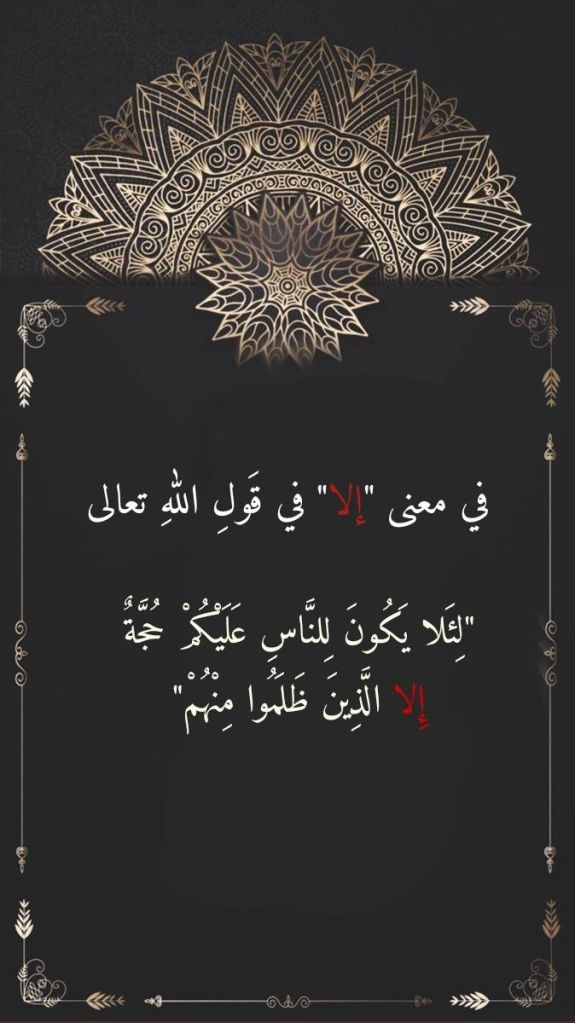 في معنى "إلا" في قَولِ اللهِ تعالى
"لِئَلا يَكُونَ لِلنَّاسِ عَلَيْكُمْ حُجَّةٌ
إِلا الَّذِينَ ظَلَمُوا مِنْهُمْ"